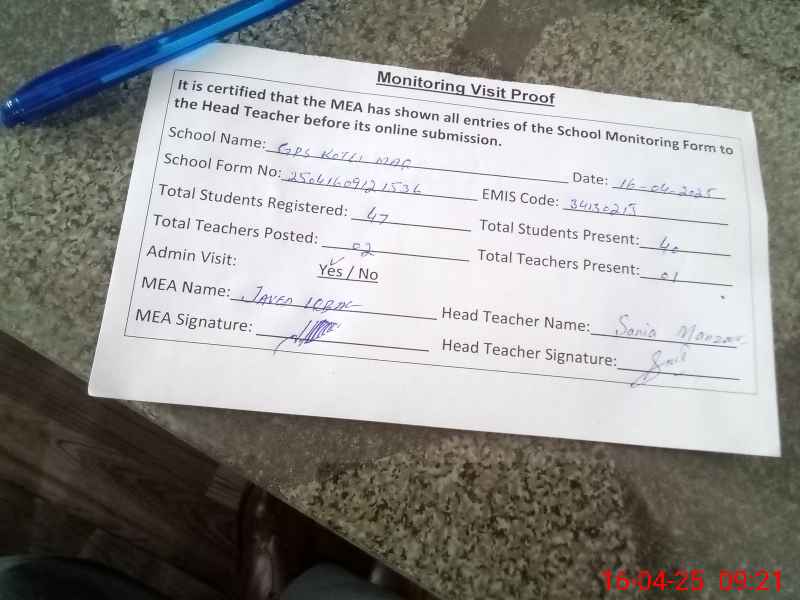 Monitoring Visit Proof
It is certified that the MEA has shown all entries of the School Monitoring Form to
the Head Teacher before its online submission.
School Name: GPS KOTLI Date: 16-04-2025
School Form No: EMIS Code: 34130215
Total Students Registered: 47 Total Students Present: 40
Total Teachers Posted: 02 Total Teachers Present: 01
Admin Visit: Yes / No
MEA Name: JAVED IQBAL Head Teacher Name: Sania Manzoor
MEA Signature: Head Teacher Signature:
16-04-25 09:21